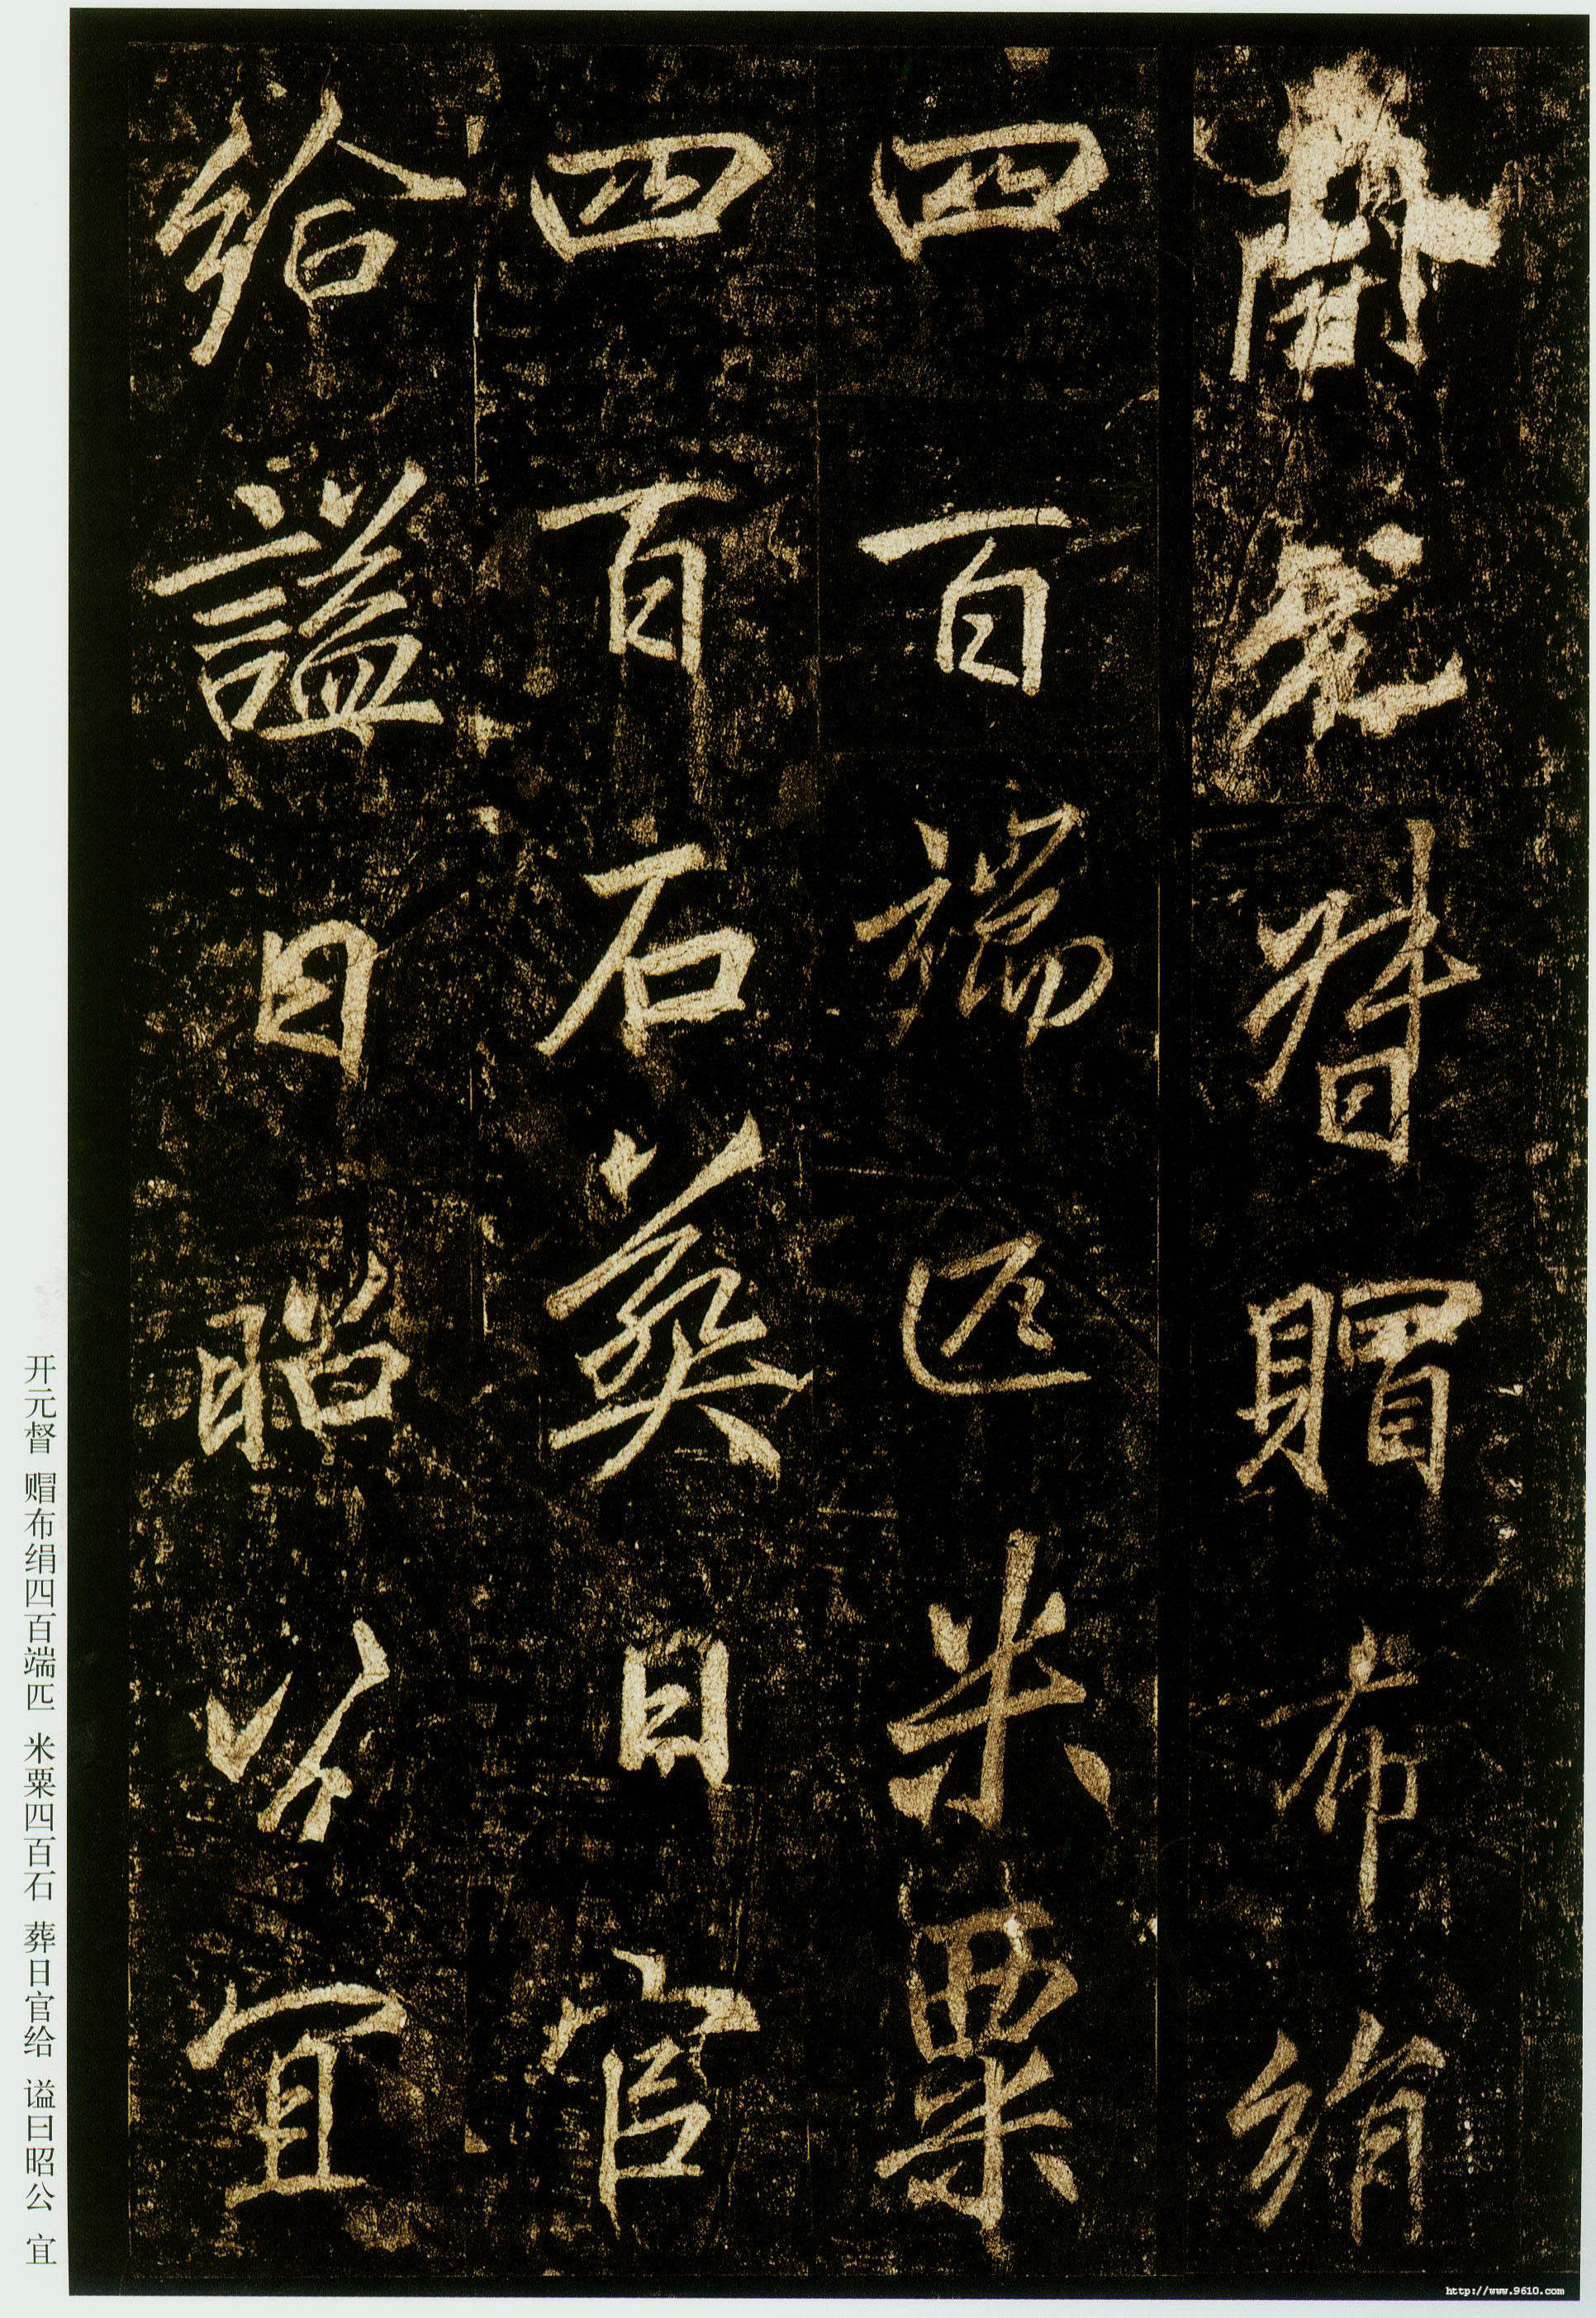 開元督賵布絹
四百端匹米粟
四百石葬日官
給謚曰昭公宜
开元督 赗布绢四百端匹 米粟四百石 葬日官给 谥曰昭公 宜
http://www.9610.com